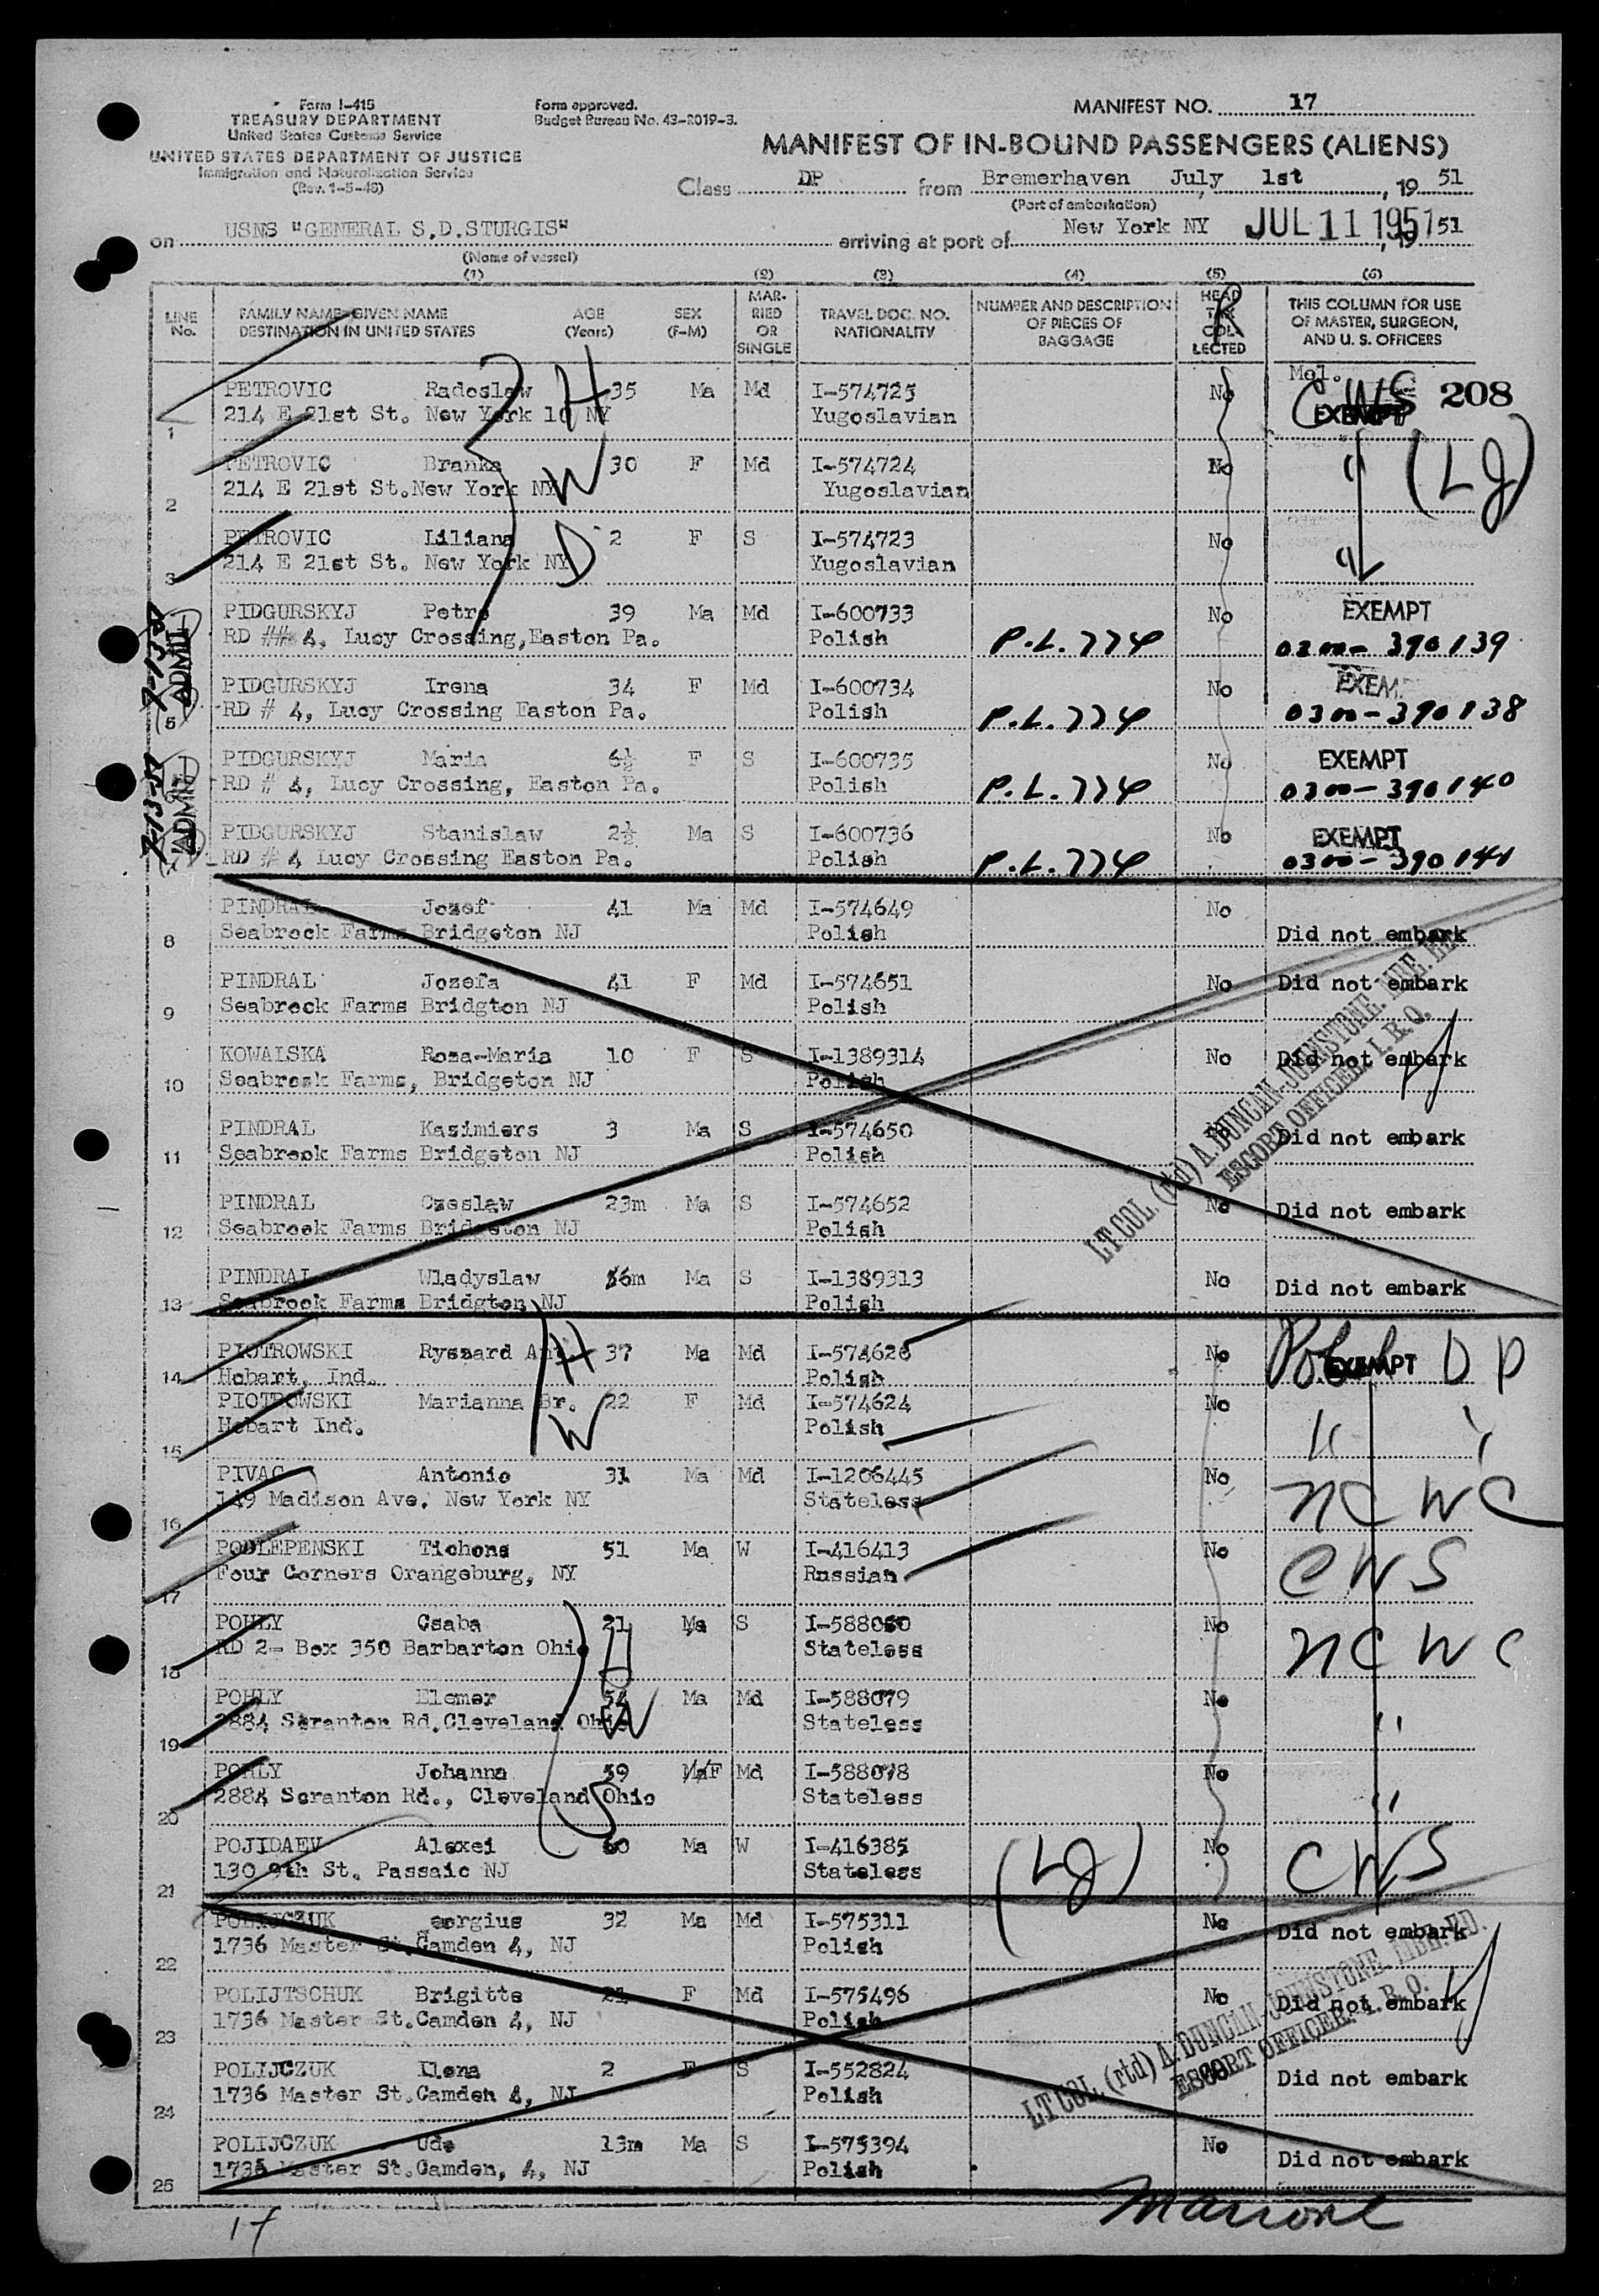 Form I-415
TREASURY DEPARTMENT
United States Customs Service
UNITED STATES DEPARTMENT OF JUSTICE
Immigration and Naturalization Service
(Rev. 1-5-48)
Form approved.
Budget Bureau No. 43-R019-3.
MANIFEST NO. 17
MANIFEST OF IN-BOUND PASSENGERS (ALIENS)
Class DP from Bremerhaven July 1st, 19 51
(Port of embarkation)
on USNS "GENERAL S.D.STURGIS" arriving at port of New York NY JUL 11 1951, 19 51
(Name of vessel)
(1) (2) (3) (4) (5) (6)
LINE No. FAMILY NAME-GIVEN NAME DESTINATION IN UNITED STATES AGE (Years) SEX (F-M) MARRIED OR SINGLE TRAVEL DOC. NO. NATIONALITY NUMBER AND DESCRIPTION OF PIECES OF BAGGAGE HEAD TAX COLLECTED THIS COLUMN FOR USE OF MASTER, SURGEON, AND U. S. OFFICERS
PETROVIC Radoslaw H 35 Ma Md I-574725 No CWS EXEMPT 208
1 214 E 21st St. New York 10 NY Yugoslavian
PETROVIC Branka W 30 F Md I-574724 No " (LJ)
2 214 E 21st St.New York NY Yugoslavian
PETROVIC Liliana D 2 F S I-574723 No "
3 214 E 21st St. New York NY Yugoslavian
PIDGURSKYJ Petro 39 Ma Md I-600733 No EXEMPT
RD ## 4, Lucy Crossing,Easton Pa. Polish P.L. 774 0300-390139
PIDGURSKYJ Irena 34 F Md I-600734 No EXEM
5 RD # 4, Lucy Crossing Easton Pa. Polish P.L. 774 0300-390138
PIDGURSKYJ Maria 6½ F S I-600735 No EXEMPT
RD # 4, Lucy Crossing, Easton Pa. Polish P.L. 774 0300-390140
PIDGURSKYJ Stanislaw 2½ Ma S I-600736 No EXEMPT
RD # 4 Lucy Crossing Easton Pa. Polish P.L. 774 0300-390141
7-13-51 ADMIT
7-13-51 ADMIT
PINDRAL Jozef 41 Ma Md I-574649 No
8 Seabrook Farms Bridgeton NJ Polish Did not embark
PINDRAL Jozefa 41 F Md I-574651 No Did not embark
9 Seabrook Farms Bridgton NJ Polish
KOWALSKA Roza-Maria 10 F S I-1389314 No Did not embark
10 Seabrook Farms, Bridgeton NJ Polish
PINDRAL Kazimiers 3 Ma S I-574650 No Did not embark
11 Seabrook Farms Bridgeton NJ Polish
PINDRAL Czeslaw 23m Ma S I-574652 No Did not embark
12 Seabrook Farms Bridgeton NJ Polish
PINDRAL Wladyslaw 6m Ma S I-1389313 No Did not embark
13 Seabrook Farms Bridgton NJ Polish
LT COL. (rtd) A. DUNCAN-JOHNSTONE.
ESCORT OFFICER, I. R. O.
PIOTROWSKI Ryszard H 37 Ma Md I-574626 No EXEMPT DP
14 Hobart, Ind. Polish
PIOTROWSKI Marianna Br. W 22 F Md I-574624 No
15 Hobart Ind. Polish " "
PIVAC Antonio 31 Ma Md I-1206445 No NCWC
16 149 Madison Ave. New York NY Stateless
PODLEPENSKI Tichons 51 Ma W I-416413 No CWS
17 Four Corners Orangeburg, NY Russian
POHLY Csaba 21 Ma S I-588080 No NCWC
18 RD 2- Box 350 Barbarton Ohio Stateless
POHLY Elemer 54 Ma Md I-588079 No
19 2884 Scranton Rd.Cleveland Ohio Stateless "
POHLY Johanna 59 F Md I-588078 No
20 2884 Scranton Rd., Cleveland Ohio Stateless "
POJIDAEV Alexei 60 Ma W I-416385 (LJ) No CWS
21 130 9th St. Passaic NJ Stateless
POLIJCZUK eorgius 32 Ma Md I-575311 No Did not embark
22 1736 Master St.Camden 4, NJ Polish
POLIJTSCHUK Brigitte 21 F Md I-575496 No Did not embark
23 1736 Master St.Camden 4, NJ Polish
POLIJCZUK Ilena 2 F S I-552824 No Did not embark
24 1736 Master St.Camden 4, NJ Polish
POLIJCZUK Udo 13m Ma S I-575394 No Did not embark
25 1736 Master St.Camden, 4, NJ Polish
LT COL. (rtd) A. DUNCAN JOHNSTONE.
ESCORT OFFICER, I. R. O.
17